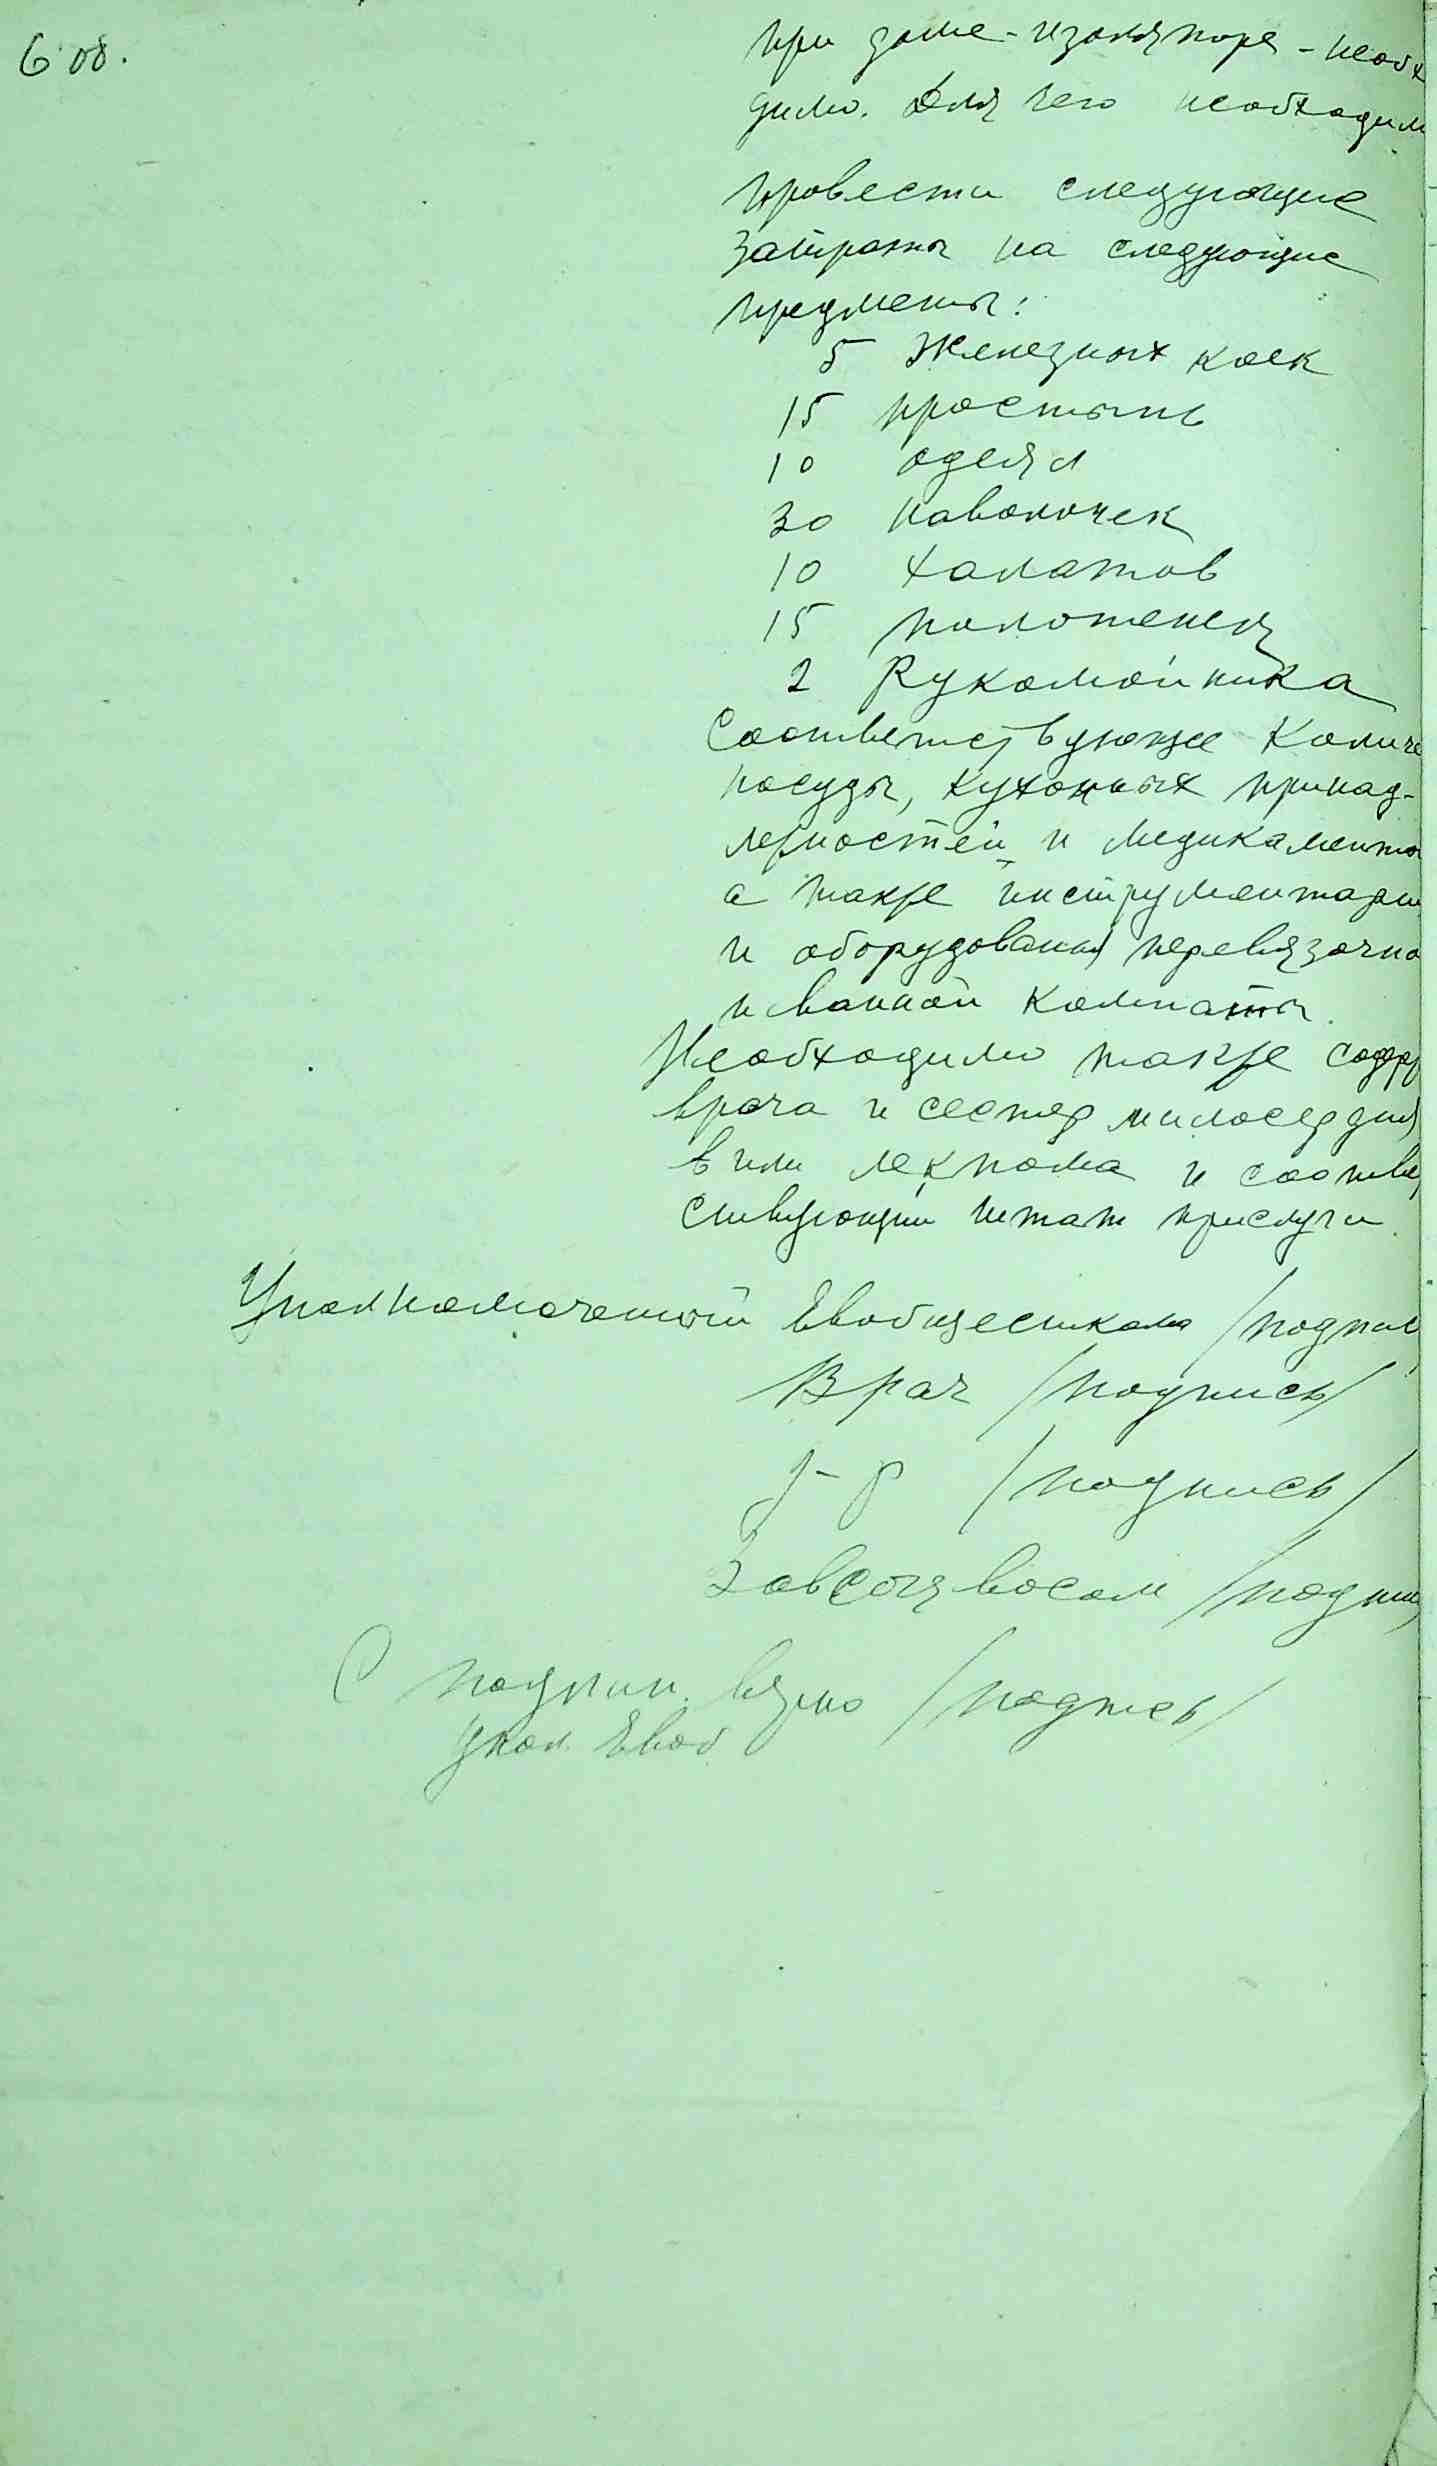 6 об.
при доме-изоляторе - необх
димо. Для чего необходим
провести следующие
затраты на следующие
предметы:
5 Железных коек
15 простынь
10 одеял
30 наволочек
10 халатов
15 полотенец
2 Рукомойника
Соответствующее Количе
посуды, кухонных принад-
лежностей и медикаменто
а также инструментари
и оборудования перевязочно
и ванной комнаты.
Необходимо также содерж
врача и сестер милосердия
или лекпома и соответ
ствующий штат прислуги.
Уполномоченный Евобщесткома /подпис
Врач /подпись/
д-р /подпись/
Завсоцвосом /подпис
С подлин. верно /подпись/
Упол. Евоб